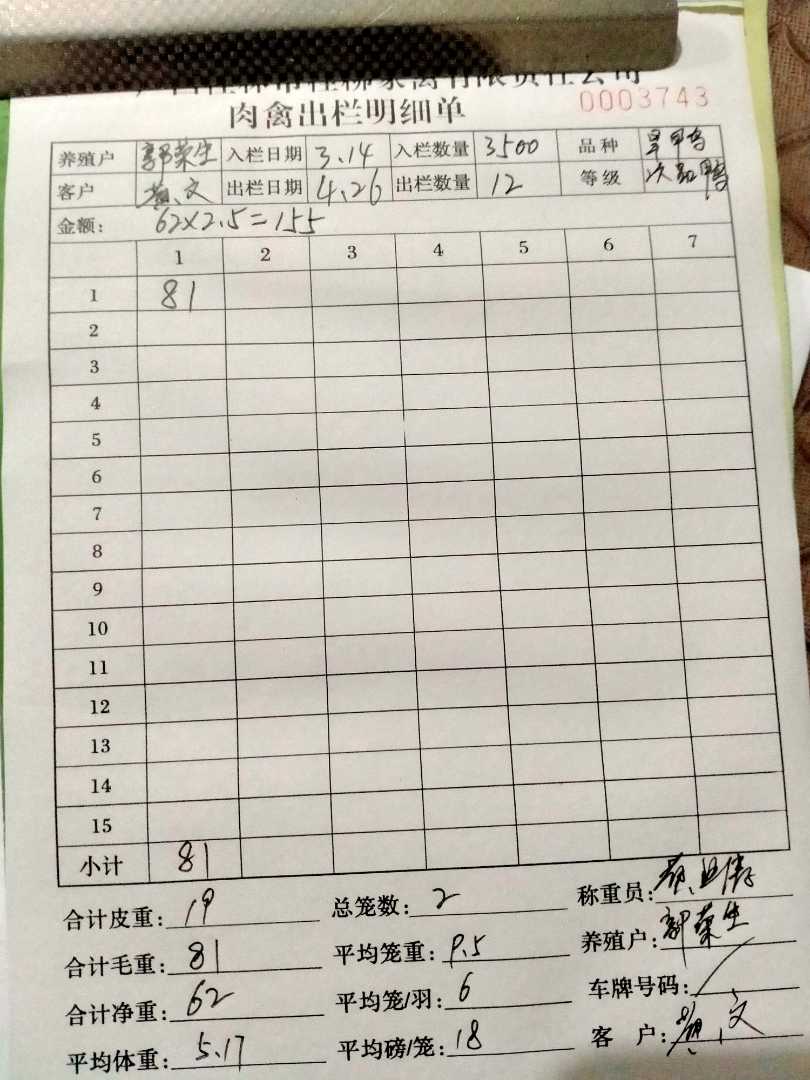 肉禽出栏明细单
0003743
养殖户 郭荣生 入栏日期 3.14 入栏数量 3500 品种
客户 出栏日期 4.26 出栏数量 12 等级
金额: 62×2.5=155
1 2 3 4 5 6 7
1 81
2
3
4
5
6
7
8
9
10
11
12
13
14
15
小计 81
合计皮重: 19 总笼数: 2 称重员:
合计毛重: 81 平均笼重: 9.5 养殖户: 郭荣生
合计净重: 62 平均笼/羽: 6 车牌号码:
平均体重: 5.17 平均磅/笼: 18 客 户: